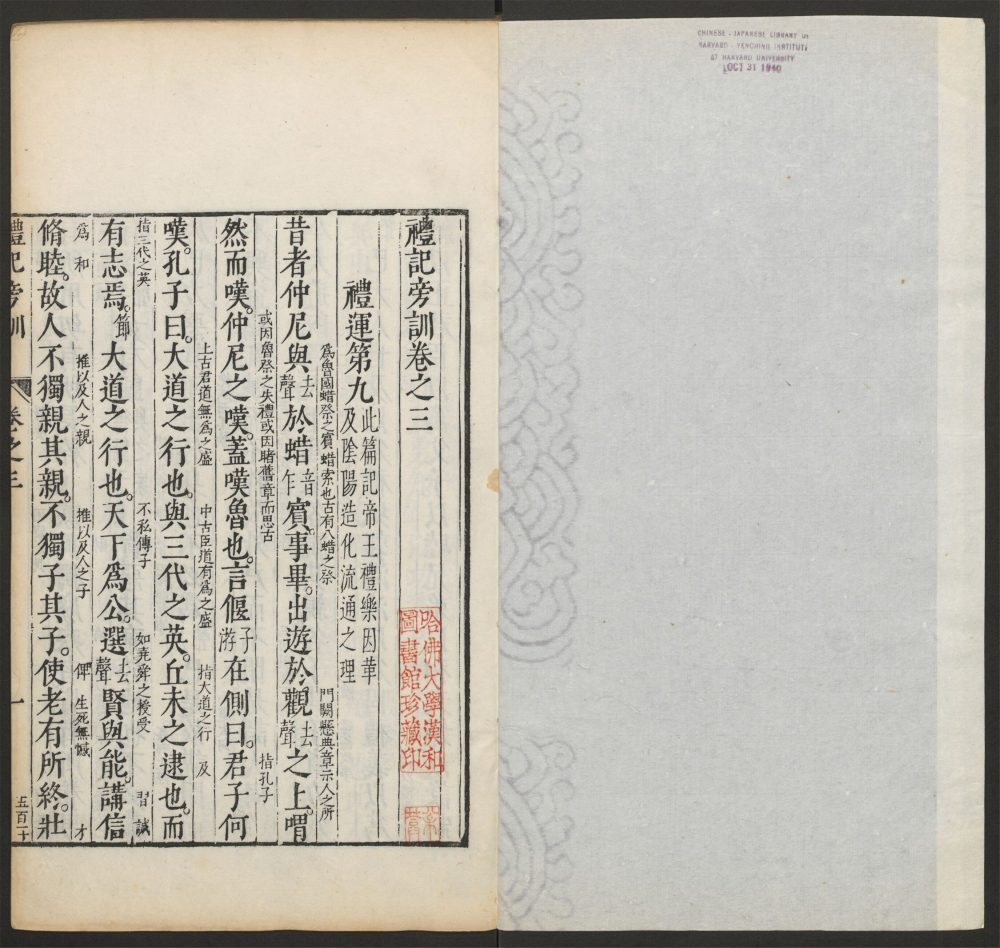 CHINESE - JAPANESE LIBRARY OF
HARVARD - YENCHING INSTITUTE
AT HARVARD UNIVERSITY
OCT 31 1940
禮記旁訓卷之三
哈佛大學漢和
圖書館珍藏印
禮運第九
此篇記帝王禮樂因革
及陰陽造化流通之理
為魯國蜡祭之賓 蜡索也古有八蜡之祭 門闕懸典章示人之所
昔者仲尼與去聲於蜡音乍賓。事畢。出遊於觀去聲之上。喟
或因魯祭之失禮或因睹舊章而思古 指孔子
然而嘆。仲尼之嘆。蓋嘆魯也。言偃子游在側曰。君子何
上古君道無為之盛 中古臣道有為之盛 指大道之行 及
嘆。孔子曰。大道之行也。與三代之英。丘未之逮也。而
指三代之英 不私傳子 如堯舜之授受 習 誠
有志焉。節大道之行也。天下為公。選去聲賢與能。講信
為 和 推以及人之親 推以及人之子 俾 生死無憾 才
脩睦。故人不獨親其親。不獨子其子。使老有所終。壯
禮記旁訓 卷之三 一
五百二十